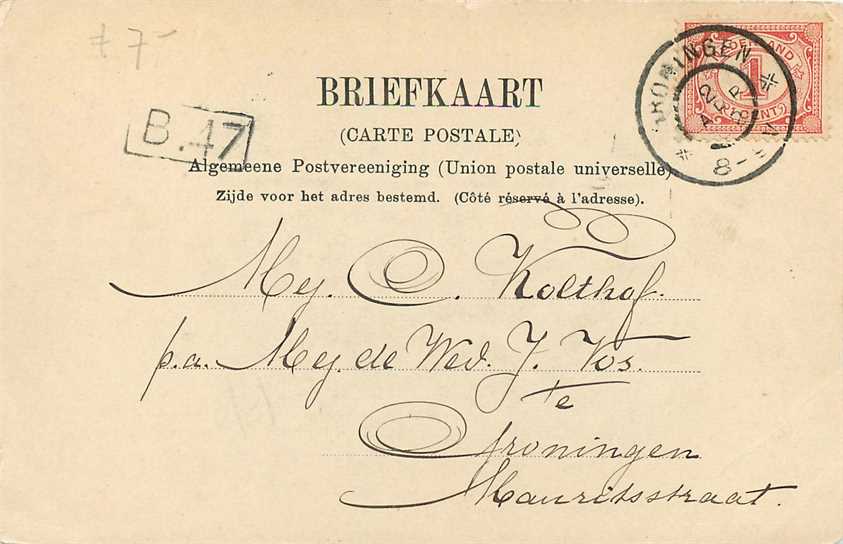 ƒ 7-
NEDERLAND
1
CENT
GRONINGEN
BRIEFKAART
(CARTE POSTALE)
B.47
Algemeene Postvereeniging (Union postale universelle)
Zijde voor het adres bestemd. (Côté réservé à l'adresse).
Mej. C. Kolthof.
p.a. Mej. de Wed. J. Vos.
te
Groningen
Mauritsstraat.